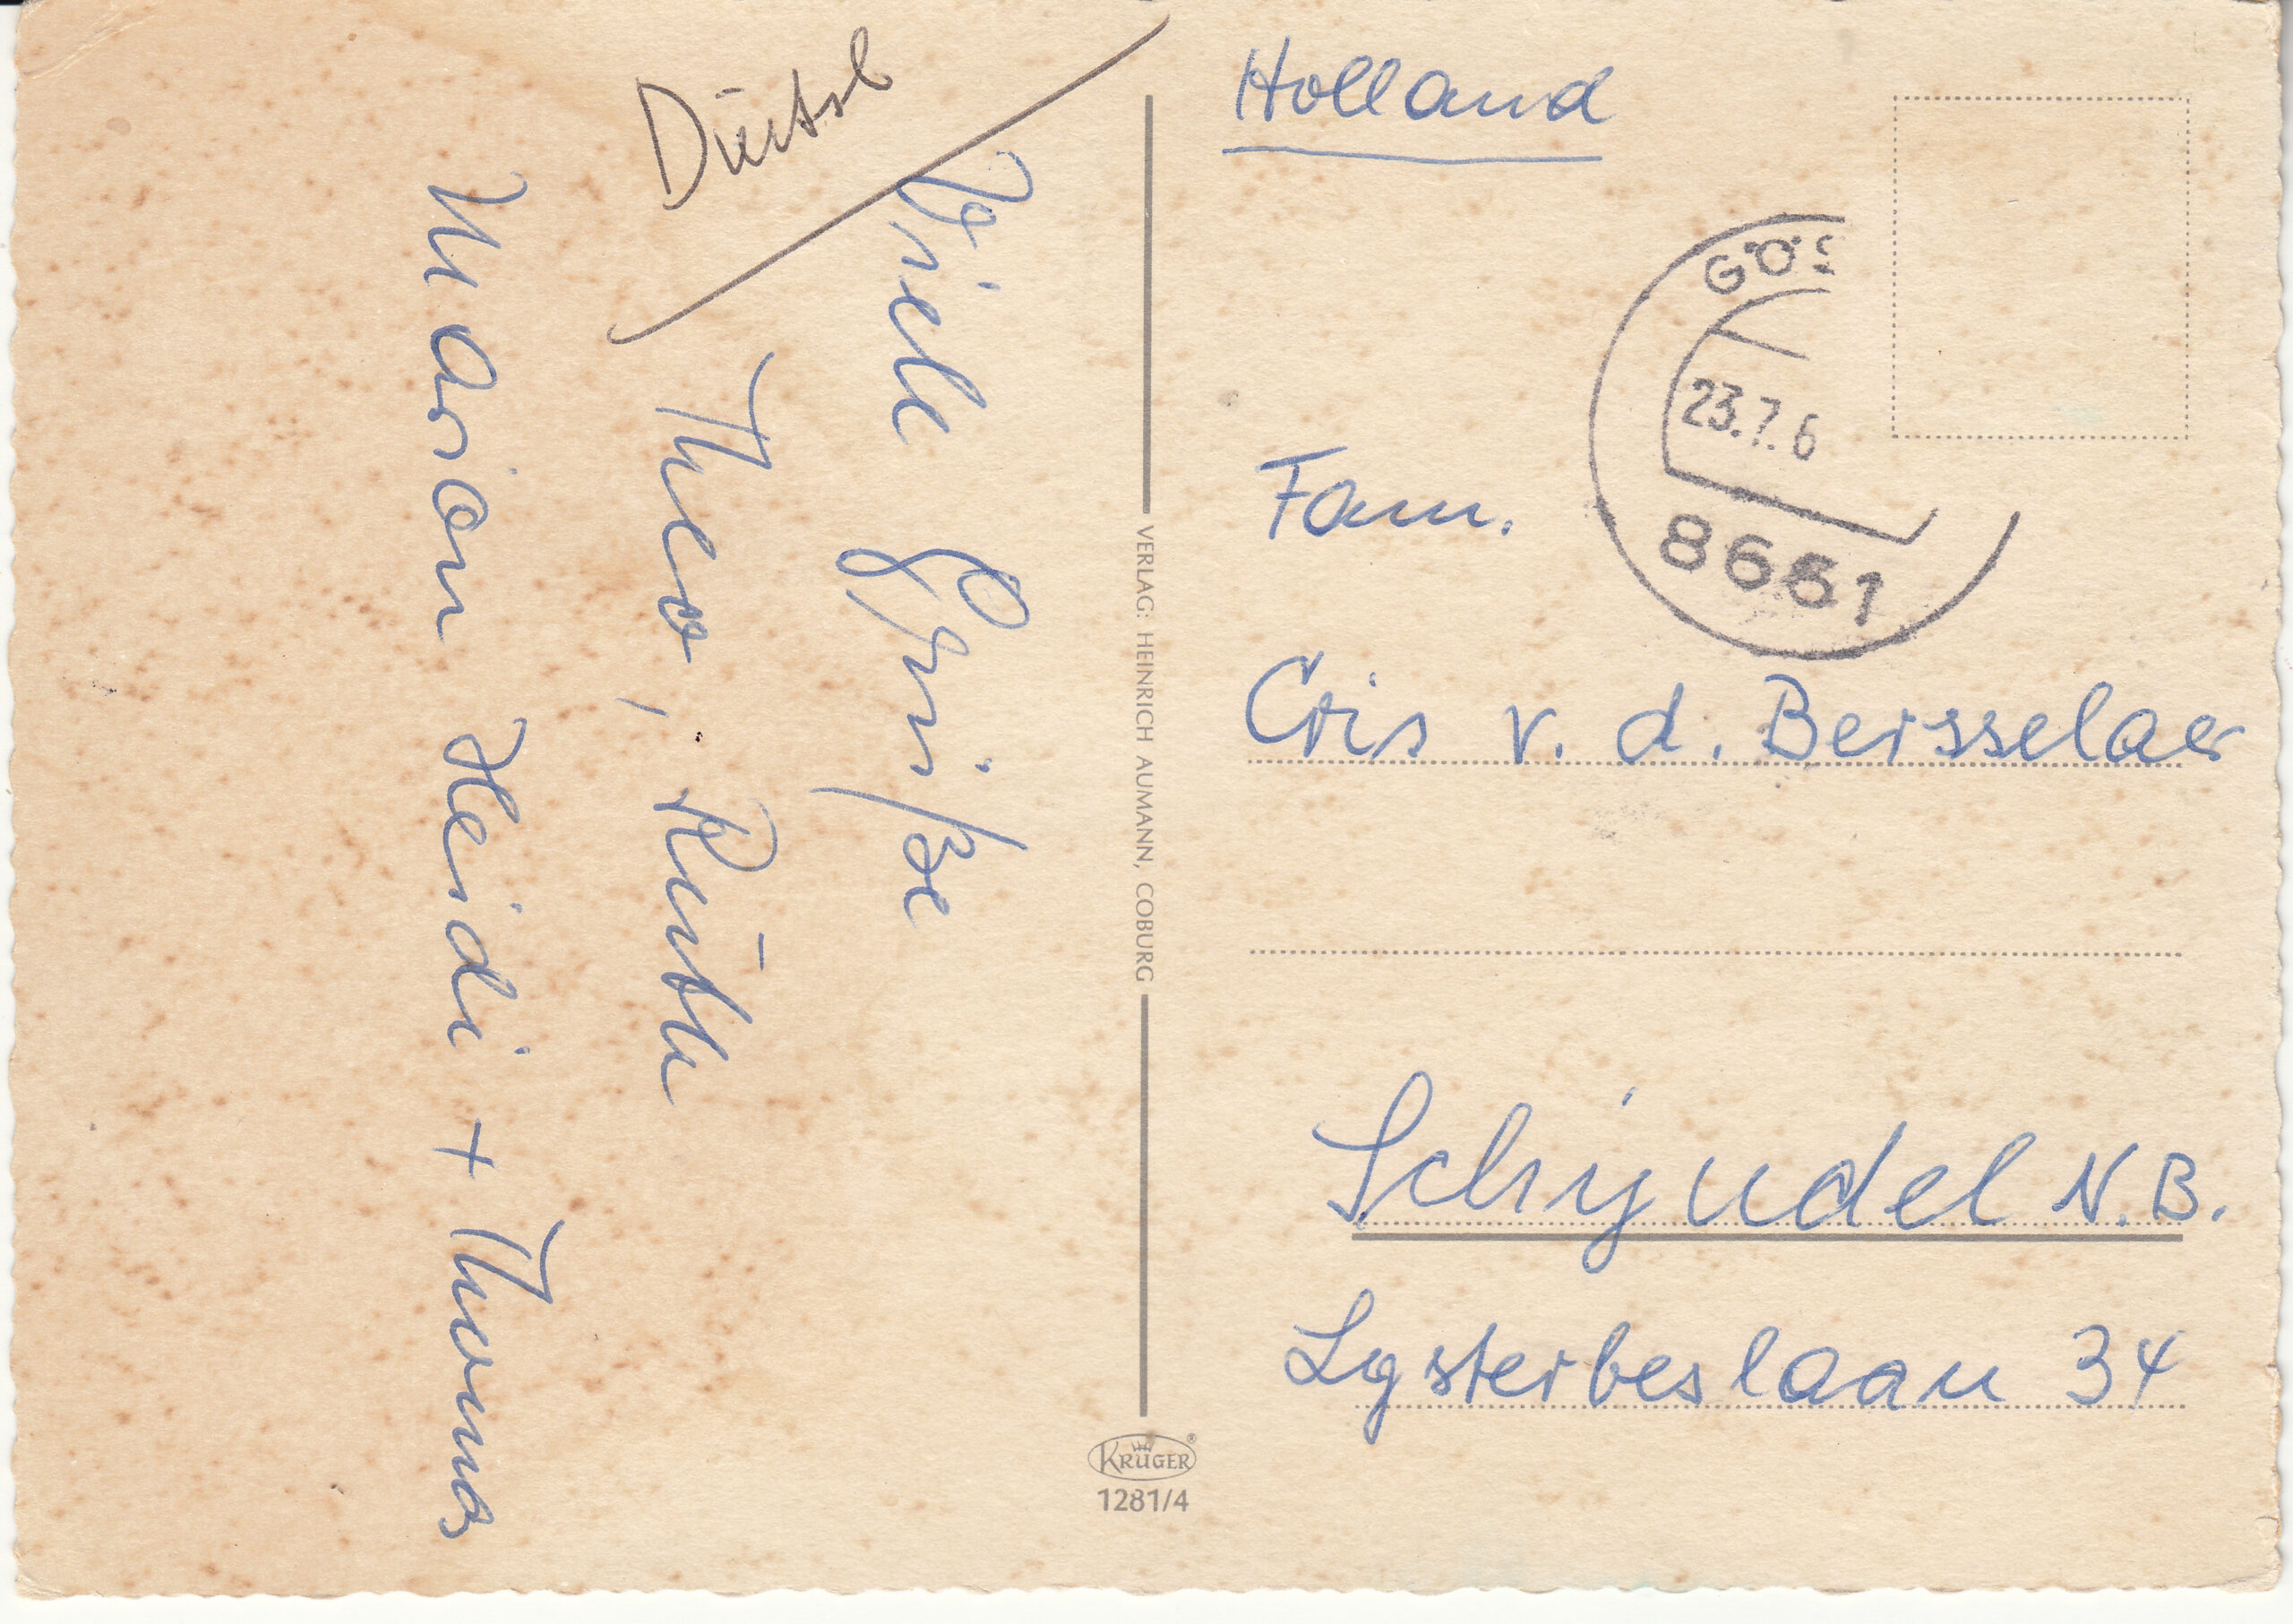 Duitsl
Viele Grüße
Theo, Ruth
Marion Heidi + Thomas
VERLAG: HEINRICH AUMANN, COBURG
KRÜGER®
1281/4
Holland
GÖS
23.7.6
8661
Fam.
Cris v. d. Bersselaer
Schijndel N.B.
Lysterbeslaan 34